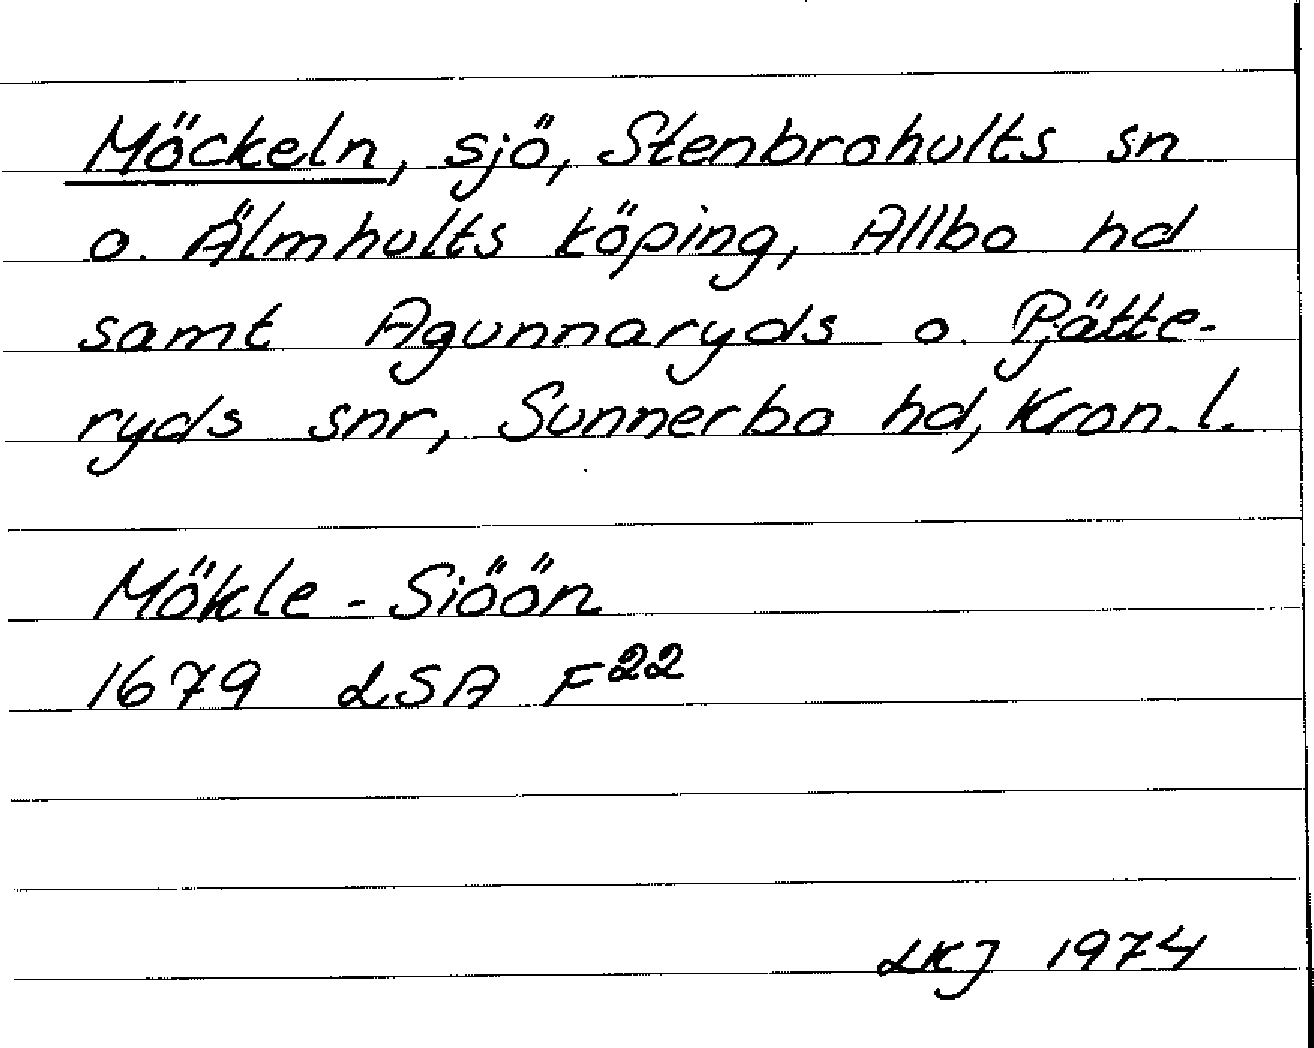 Möckeln, sjö, Stenbrohults sn
o. Älmhults köping, Allbo hd
samt Agunnaryds o. Pjätte-
ryds snr, Sunnerbo hd, Kron. l.
Mökle - Siöön
1679 LSA F22
LKJ 1974